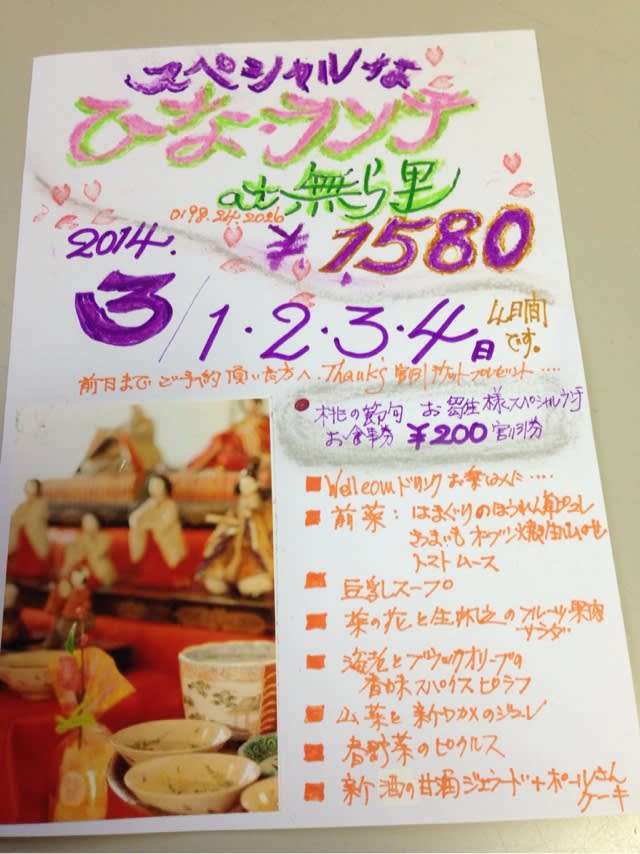 スペシャルな
ひな・ランチ
at 無ら里
0198.24.2026
¥1580
2014.
3/1・2・3・4日
4日間です。
前日までご予約頂いた方へ.Thank's 割引
桃の節句 お雛生様スペシャルランチ
お食事券 ¥200割引券
Wellcomドリンクお楽しみに‥‥
前菜:はまぐりのほうれん草ピュレ
あまいもオーブン焼
トマトムース
豆乳スープ
菜の花と生のフルーツ果肉
サラダ
海老とブラックオリーブの
香味スパイスピラフ
山菜と新ワカメのジュレ
春野菜のピクルス
新酒の甘酒ジェラード+ポールさん
ケーキ